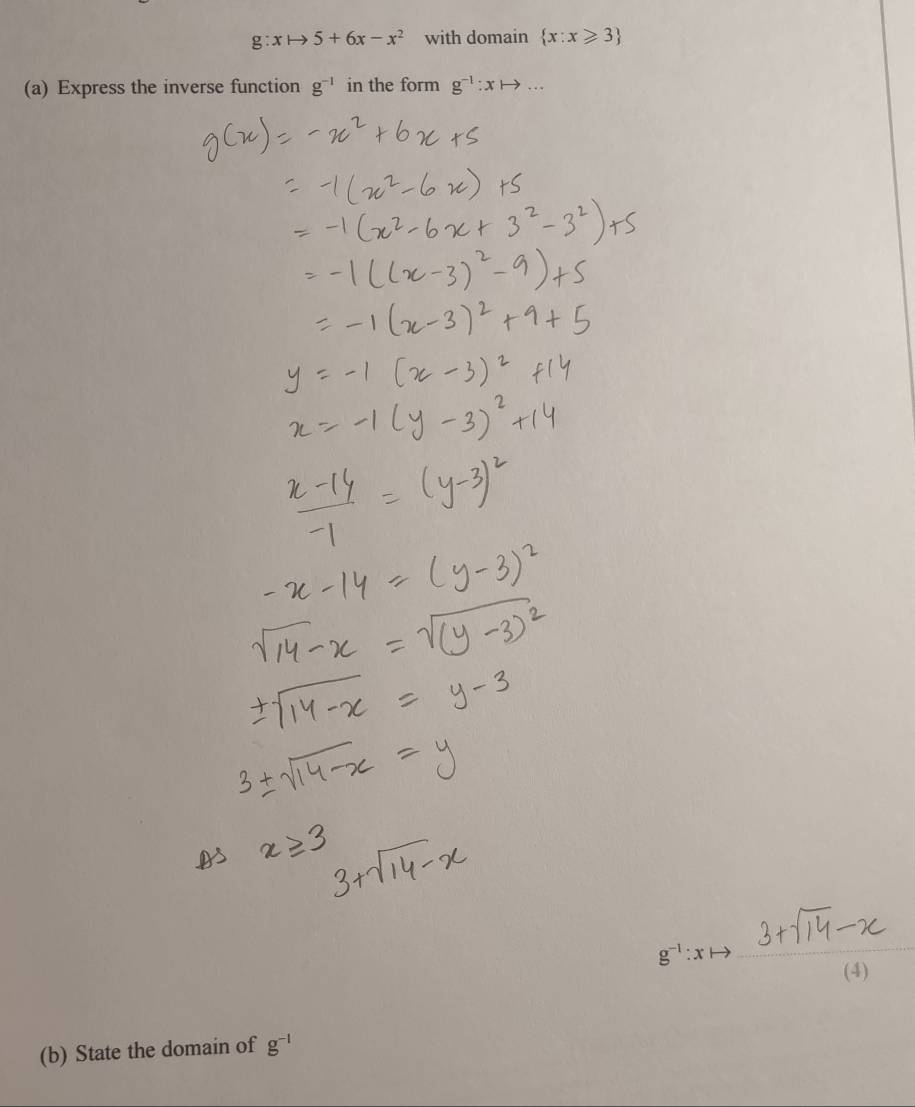 g : x ↦ 5 + 6x − x² with domain {x : x ⩾ 3}
(a) Express the inverse function g⁻¹ in the form g⁻¹ : x ↦ ...
g(x) = -x² + 6x + 5
= -1(x² - 6x) + 5
= -1(x² - 6x + 3² - 3²) + 5
= -1((x-3)² - 9) + 5
= -1(x-3)² + 9 + 5
y = -1 (x-3)² + 14
x = -1(y-3)² + 14
(x-14)/-1 = (y-3)²
-x - 14 = (y-3)²
√14 - x = √(y-3)²
±√(14-x) = y - 3
3 ± √(14-x) = y
As x ≥ 3
3 + √14 - x
g⁻¹ : x ↦ 3 + √14 - x
(4)
(b) State the domain of g⁻¹